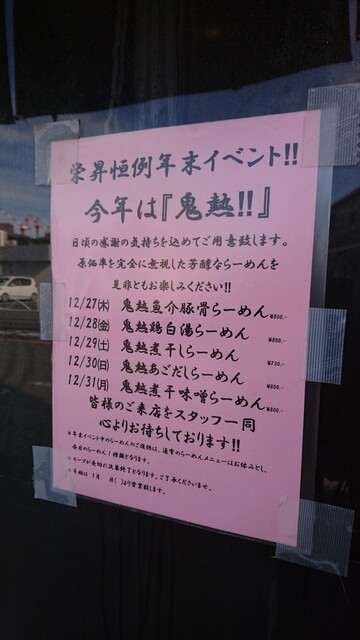 栄昇恒例年末イベント!!
今年は『鬼熱!!』
日頃の感謝の気持ちを込めてご用意致します。
原価率を完全に無視した芳醇ならーめんを
是非ともお楽しみください!!
12/27(木) 鬼熱魚介豚骨らーめん ¥800.-
12/28(金) 鬼熱鶏白湯らーめん ¥800.-
12/29(土) 鬼熱煮干しらーめん ¥750.-
12/30(日) 鬼熱あごだしらーめん ¥800.-
12/31(月) 鬼熱煮干味噌らーめん ¥800.-
皆様のご来店をスタッフ一同
心よりお待ちしております!!
※年末イベント中のらーめんのご提供は、通常のらーめんメニューはお休みとし、
各日のらーめん1種類となります。
※スープが売切れ次第終了となります。ご了承くださいませ。
※年始は1月 日( )より営業致します。